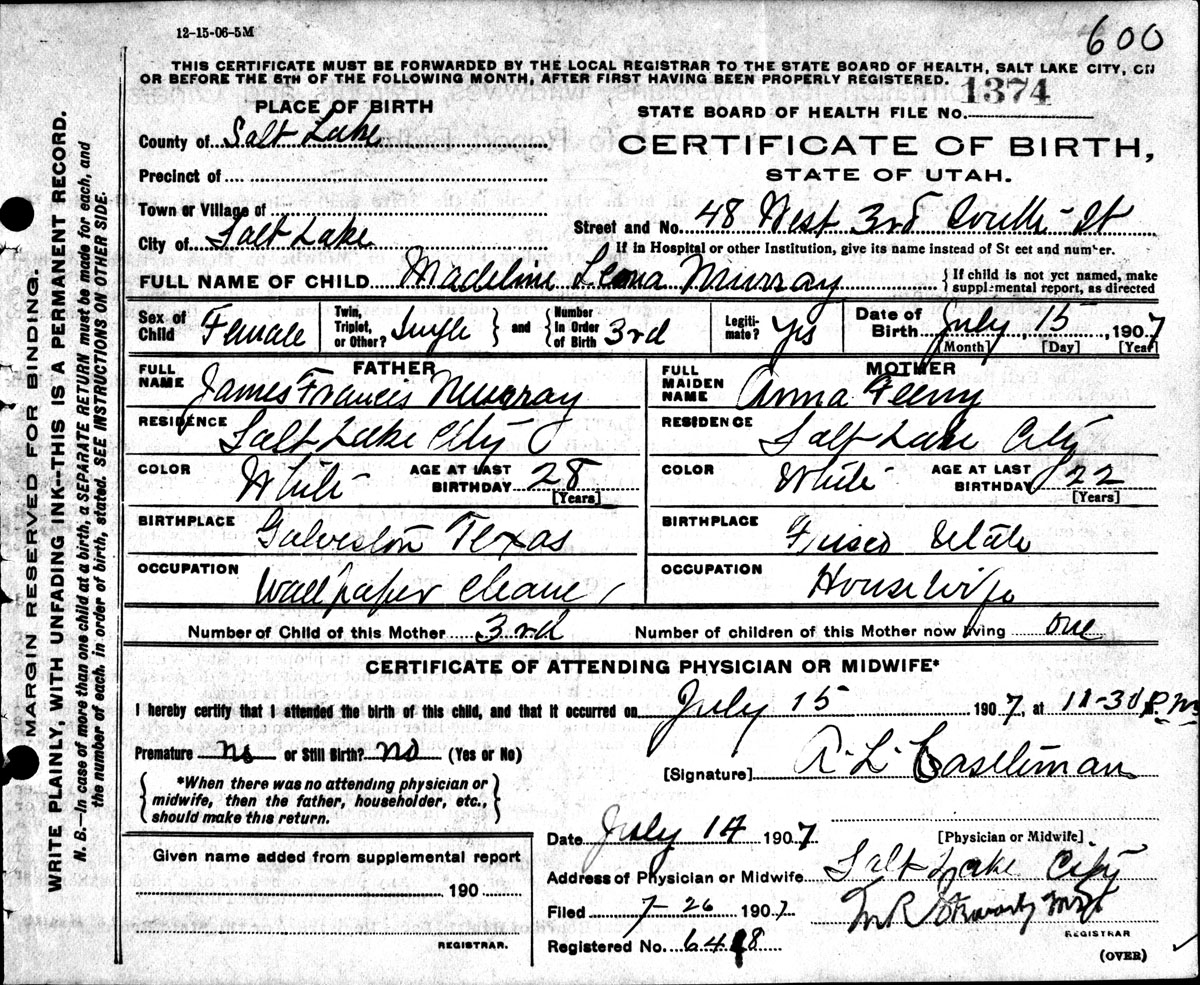 600
12-15-06-5M
THIS CERTIFICATE MUST BE FORWARDED BY THE LOCAL REGISTRAR TO THE STATE BOARD OF HEALTH, SALT LAKE CITY, ON
OR BEFORE THE 5TH OF THE FOLLOWING MONTH, AFTER FIRST HAVING BEEN PROPERLY REGISTERED.
PLACE OF BIRTH
STATE BOARD OF HEALTH FILE NO. 1374
County of Salt Lake
CERTIFICATE OF BIRTH,
Precinct of
STATE OF UTAH.
Town or Village of
City of Salt Lake
Street and No. 48 West 3rd South St
If in Hospital or other Institution, give its name instead of St eet and number.
FULL NAME OF CHILD Madeline Leona Murray
{If child is not yet named, make
supplemental report, as directed
Sex of Child Female
Twin, Triplet, or Other? Single } and { Number in Order of Birth 3rd
Legiti-mate? Yes
Date of Birth July 15, 1907
[Month] [Day] [Year]
FATHER
FULL NAME James Francis Murray
MOTHER
FULL MAIDEN NAME Anna Feeny
RESIDENCE Salt Lake City
RESIDENCE Salt Lake City
COLOR White AGE AT LAST BIRTHDAY 28 [Years]
COLOR White AGE AT LAST BIRTHDAY 22 [Years]
BIRTHPLACE Galveston Texas
BIRTHPLACE Frisco Utah
OCCUPATION Wall paper cleaner
OCCUPATION Housewife
Number of Child of this Mother 3rd Number of children of this Mother now living one
CERTIFICATE OF ATTENDING PHYSICIAN OR MIDWIFE*
I hereby certify that I attended the birth of this child, and that it occurred on July 15 1907, at 11-30 P.M
Premature no or Still Birth? no (Yes or No)
[Signature] A. L. Castleman
{*When there was no attending physician or
midwife, then the father, householder, etc.,
should make this return.}
Date July 14 1907
[Physician or Midwife]
Given name added from supplemental report
190
REGISTRAR.
Address of Physician or Midwife Salt Lake City
Filed 7-26 1907
REGISTRAR
Registered No. 6418
(OVER)
MARGIN RESERVED FOR BINDING.
WRITE PLAINLY, WITH UNFADING INK--THIS IS A PERMANENT RECORD.
N. B.—In case of more than one child at a birth, a SEPARATE RETURN must be made for each, and
the number of each, in order of birth, stated. SEE INSTRUCTIONS ON OTHER SIDE.